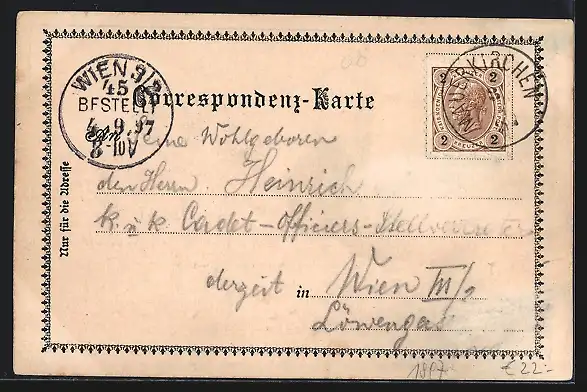 WIEN 3/2
45
BESTELLT
4. 9. 97
8-10V
Correspondenz-Karte
2 2
KREUZER
2 2
An Seine Wohlgeboren
den Herrn Heinrich
k. u. k. Cadet-Officiers-Stellvertreter
derzeit in Wien III/2
Löwengas
Nur für die Adresse
1897 € 22.-